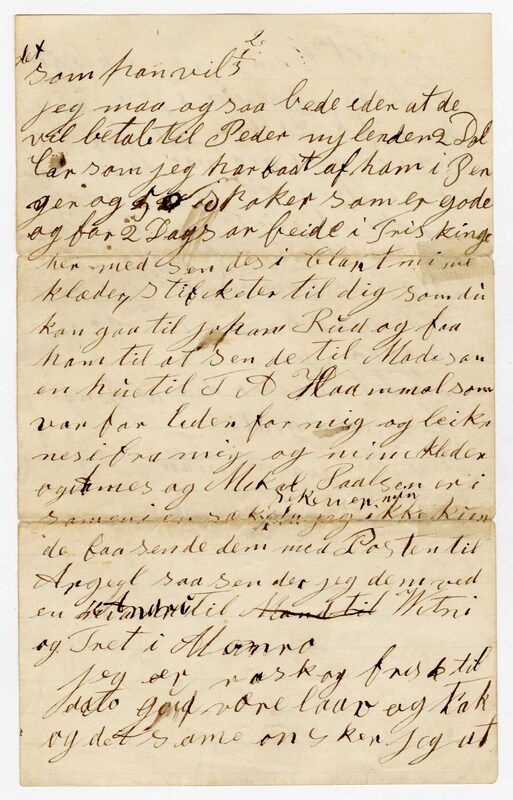 det
som han vil
jeg maa og saa bede eder at de
vil betale til Peder nylenden 2 Dol
lar som jeg har faat af ham i Pen
ger og 50 i Høker som er gode
og for 2 Dags arbeide i Friskinge
her med sendes i blant mine
klæder, stifeketer til dig som du
kan gaa til johan Rud og faa
ham til at sende til Madeson
en hue til T A Haammol som
var for leden for mig og leik
nes ifra mig og mine klæder
og James og Mekal Paalsen er i
samen i en sæk sekener myn
jeg ikke kun
de faa sende dem med Posten til
Argeyl saa sender jeg dem ved
en til Mand til Witni
og Tret i Monro
jeg er rask og frisk til
dato gud være laav og tak
og det same onsker jeg at